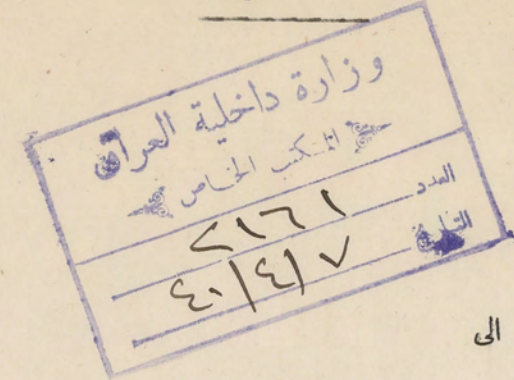 وزارة داخلية العراق
المكتب الخاص
العدد ٢١٦١
التاريخ ٤٠/٤/٧
الى